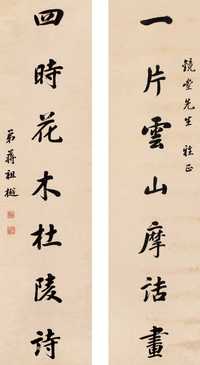 鏡堂先生 雅正
一片雲山摩詰畫
四時花木杜陵詩
弟蔣祖